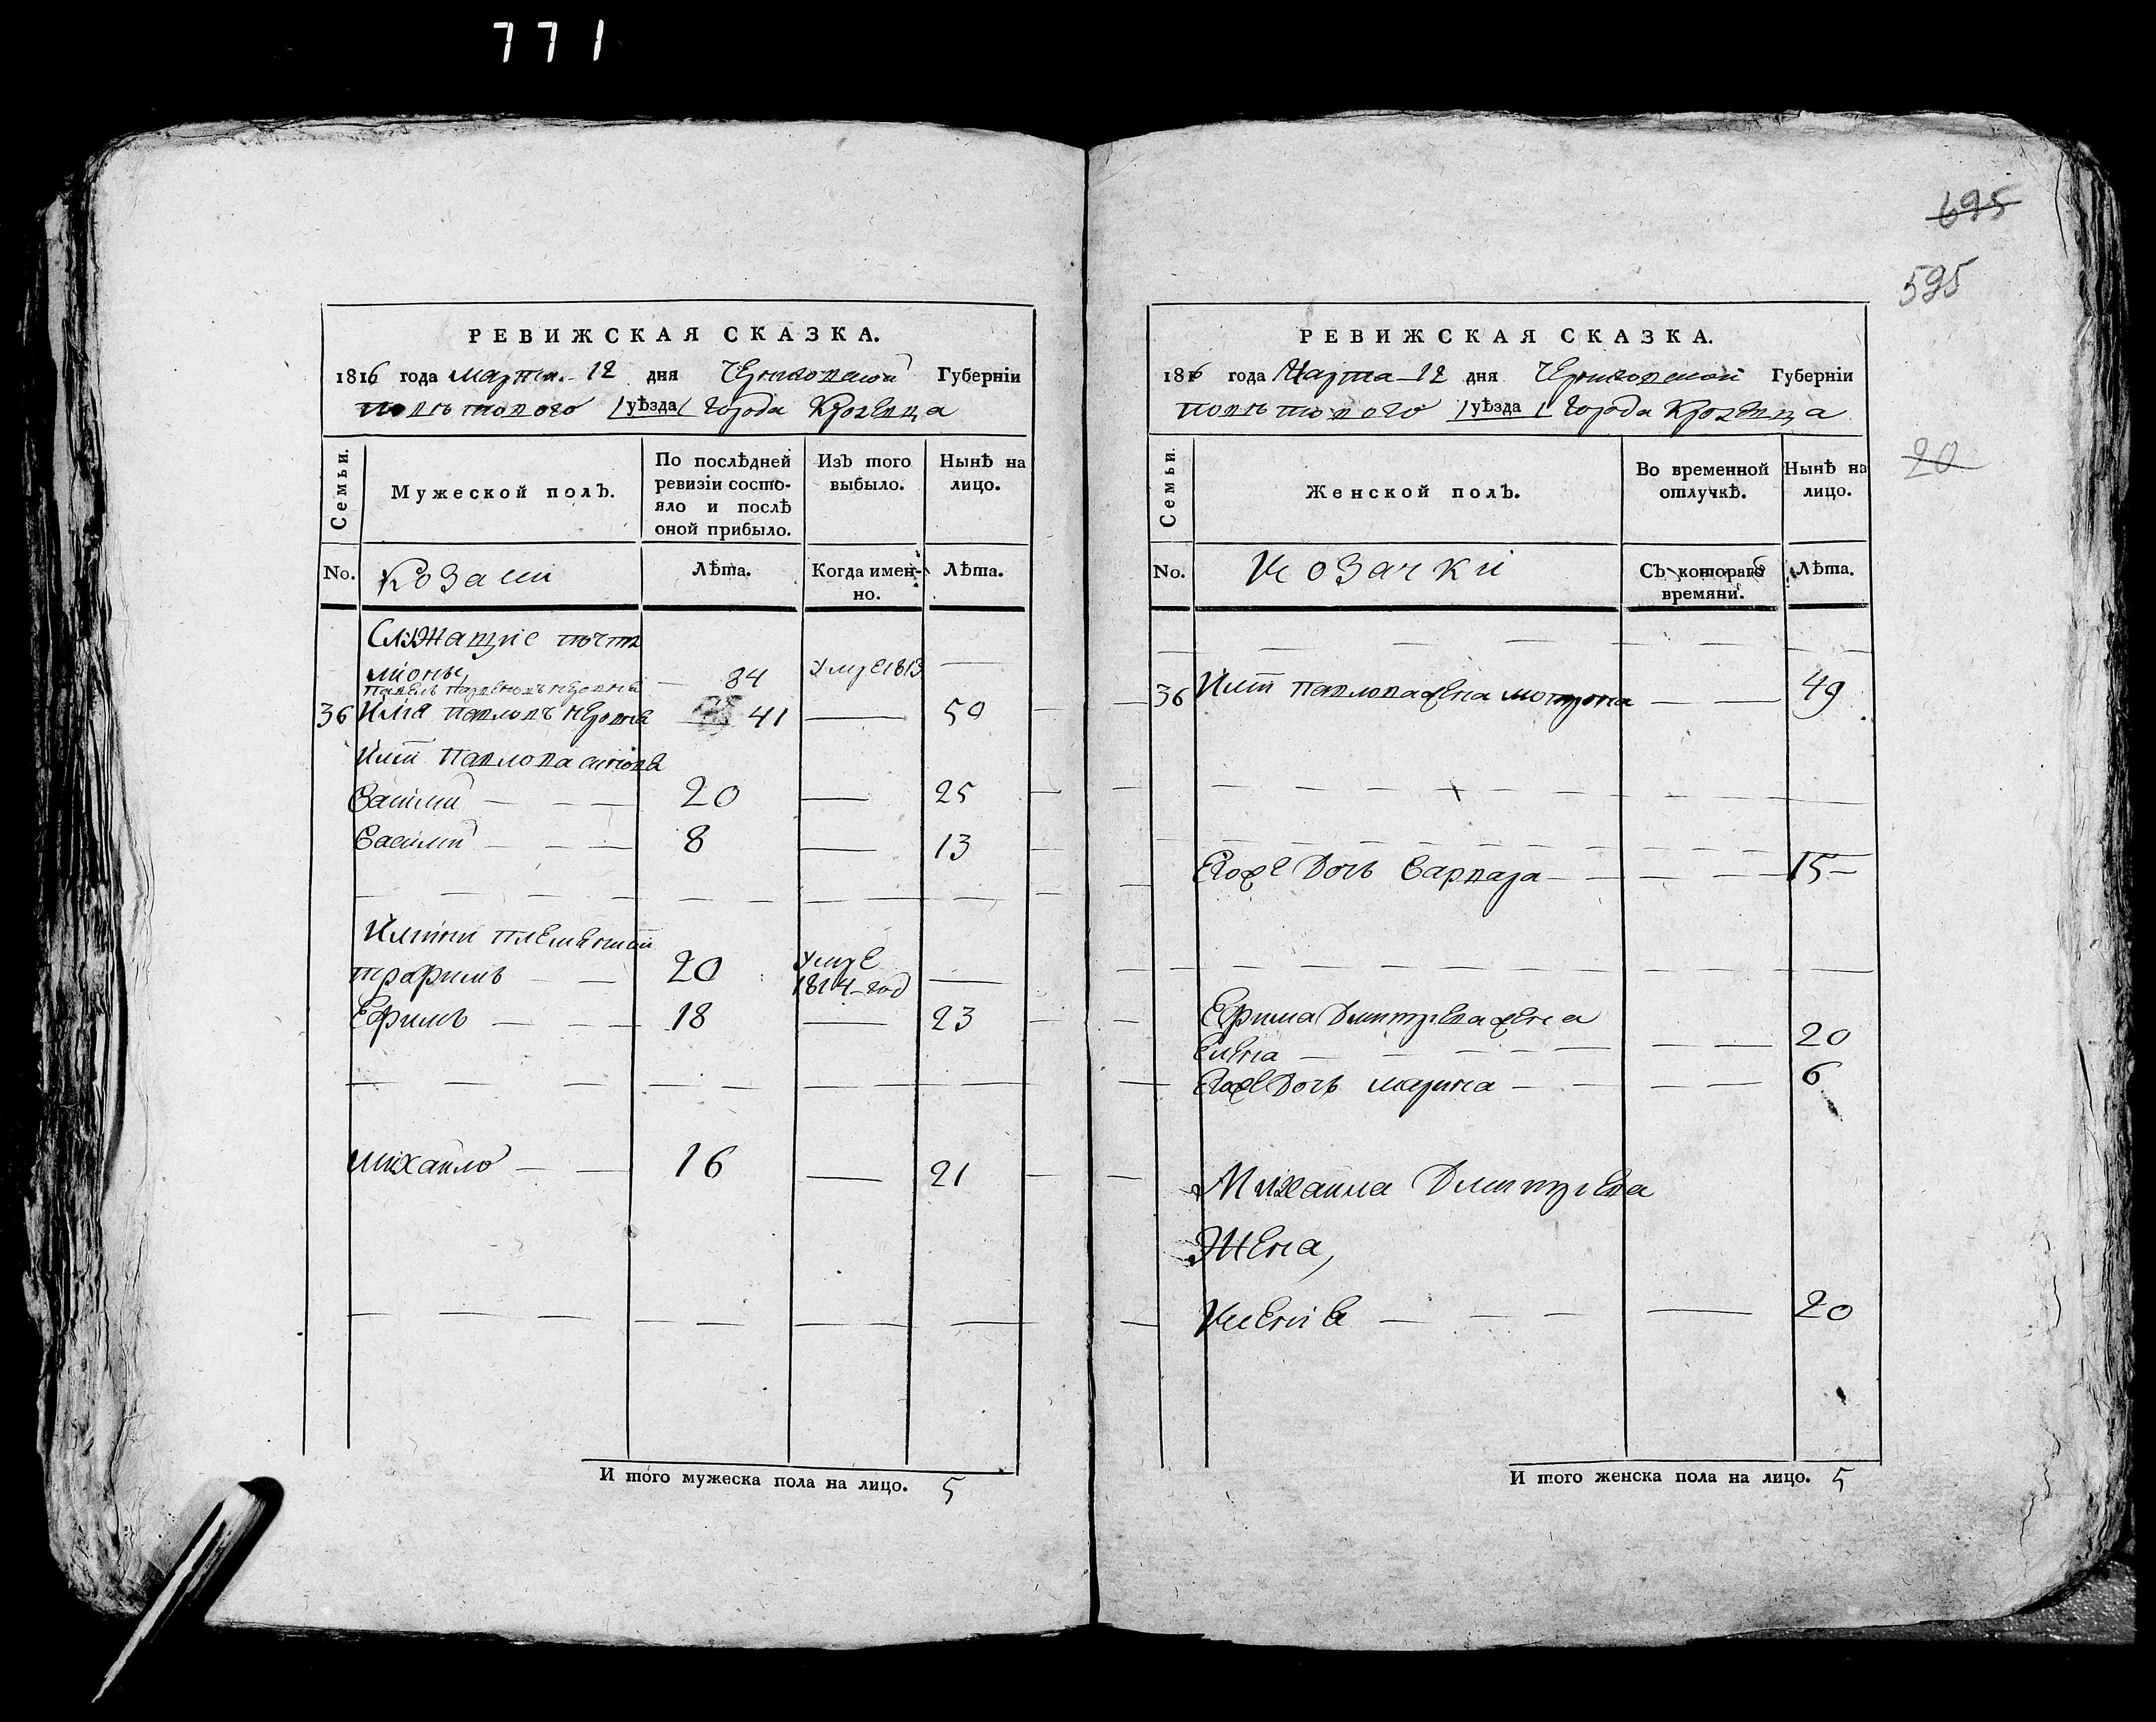 771
695
595
20
РЕВИЖСКАЯ СКАЗКА.
1816 года марта 12 дня Черниговской Губерніи
поветового /уѣзда/ города Кролевца
Семьи.
Мужеской полъ.
По послѣдней ревизіи состо-
яло и послѣ
оной прибыло.
Изъ того
выбыло.
Нынѣ на
лицо.
No.
Козаки
Лѣта.
Когда имен-
но.
Лѣта.
Служащие почта
лионы,
Павелъ 84 умре 1813 —
36 Илія Павловъ 41 — 50
Илии Павлова синове
Василий — — — 20 — 25
Василий — — — 8 — 13
Илиини племенники
трофимъ — — 20 умре
1814 год —
Ефимъ — — — 18 — 23
михайло — — 16 — 21
И того мужеска пола на лицо. 5
РЕВИЖСКАЯ СКАЗКА.
1816 года Марта 12 дня Черниговской Губерніи
поветового /уѣзда/ города Кролевца
Семьи.
Женской полъ.
Во временной
отлучкѣ.
Нынѣ на
лицо.
No.
Козачки
Съ котораго
времяни.
Лѣта.
36 Илии Павлова жена мотрона — — 49
Его же дочь Варвара — — — 15
Ефима Дмитриева жена
Елена — — — 20
Его же дочь марина — — 6
Михайла Дмитриева
Жена,
— — — 20
И того женска пола на лицо. 5